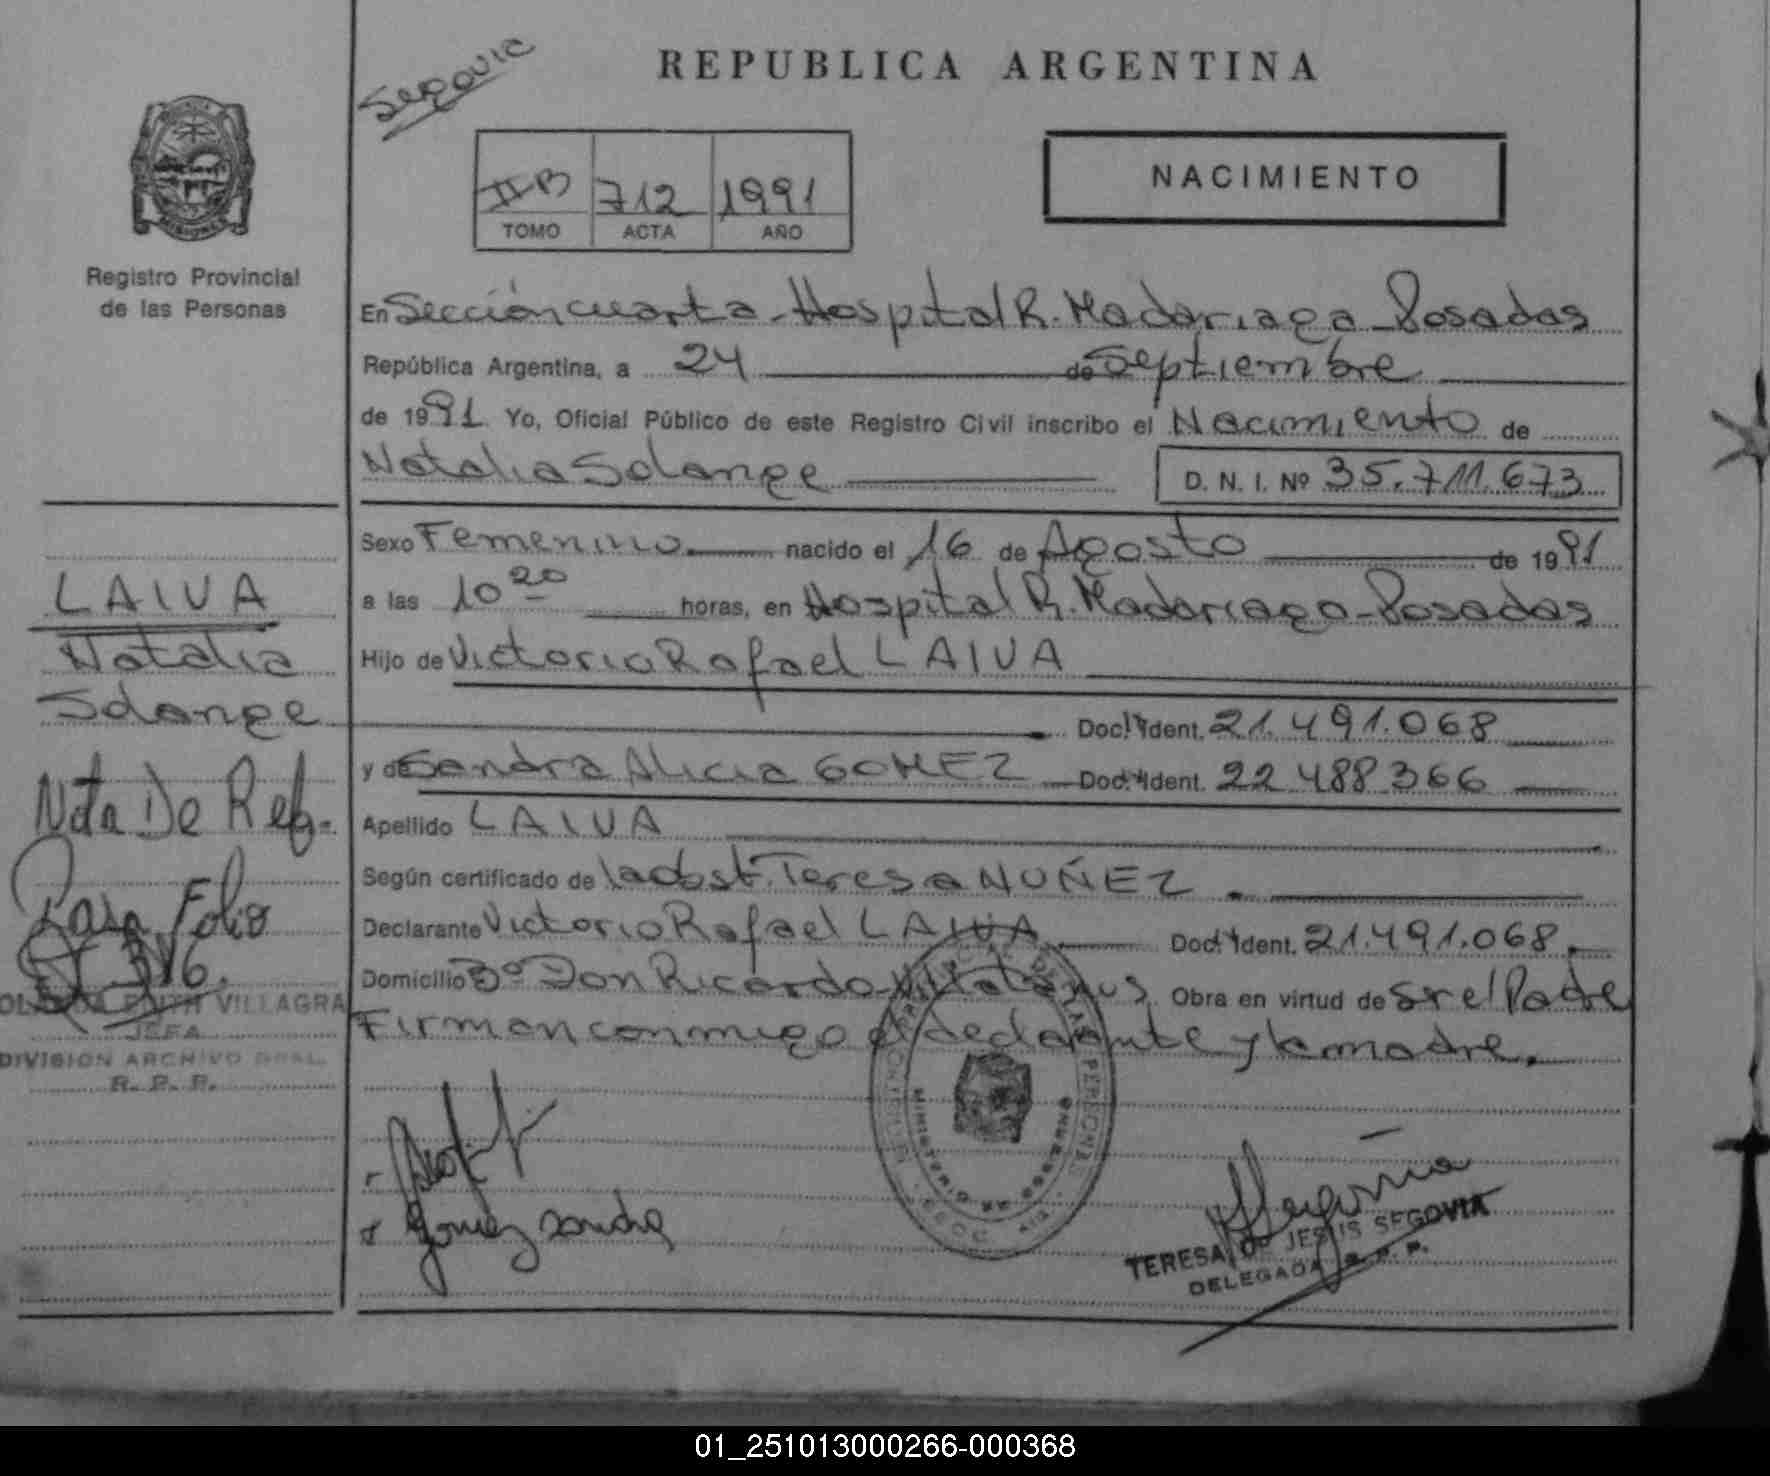 Segovia
REPUBLICA ARGENTINA
NACIMIENTO
IIB 712 1991
TOMO ACTA AÑO
Registro Provincial
de las Personas
En Sección cuarta - Hospital R. Madariaga - Posadas
República Argentina, a 24 de Septiembre
de 1991 Yo, Oficial Público de este Registro Civil inscribo el Nacimiento de
Natalia Solange D. N. I. Nº 35.711.673
Sexo Femenino nacido el 16 de Agosto de 1991
a las 10 20 horas, en Hospital R. Madariaga - Posadas
Hijo de Victorio Rafael LAIVA
Doc. Ident. 21.491.068
y de Sandra Alicia GOMEZ Doc. Ident. 22.488.366
Apellido LAIVA
Según certificado de la Obst. Teresa NUÑEZ
Declarante Victorio Rafael LAIVA Doc. Ident. 21.491.068
Domicilio Bº Don Ricardo - Obra en virtud de Sr el Padre
Firman conmigo el declarante y la madre.
LAIVA
Natalia
Solange
Nota De Ref.
Para Folio
376.
EDITH VILLAGRA
JEFA
DIVISION ARCHIVO GRAL.
R. P. P.
Gomez Sandra
MINISTERIO DE GOBIERNO
TERESA DE JESUS SEGOVIA
DELEGADA R. P. P.
01_251013000266-000368